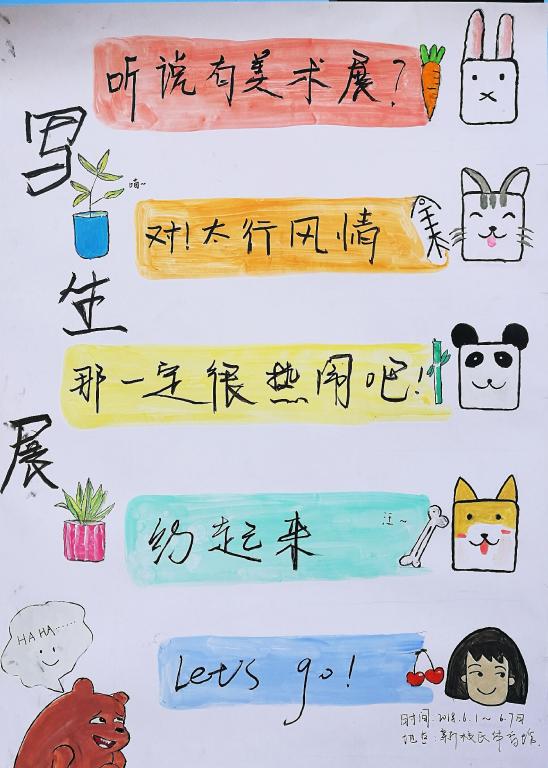 听说有美术展?
写生展
喵~
对!太行风情
那一定很热闹吧!
约起来
汪~
Let's go!
HAHA......
时间:2018.6.1~6.7日
地点:新校区体育馆